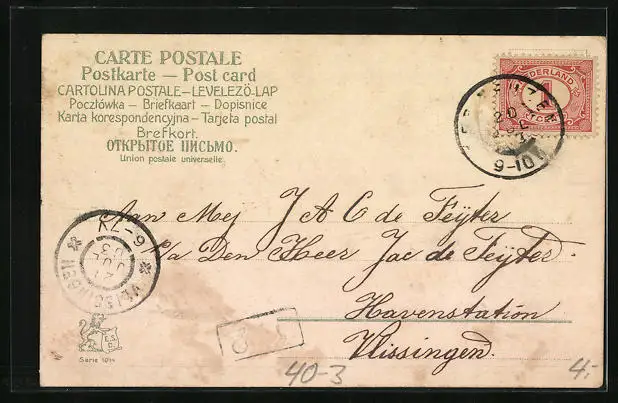 CARTE POSTALE
Postkarte — Post card
CARTOLINA POSTALE – LEVELEZÖ-LAP
Pocztówka – Briefkaart – Dopisnice
Karta korespondencyjna – Tarjeta postal
Brefkort.
ОТКРЫТОЕ ПИСЬМО.
Union postale universelle.
NEDERLAND
1
CENT
9-10V
Aan Mej J A C de Feÿter
p/a Den Heer Jac de Feÿter.
Havenstation
Vlissingen.
6-7V
VLISSINGEN
Serie 1014
3
40-3
4:-